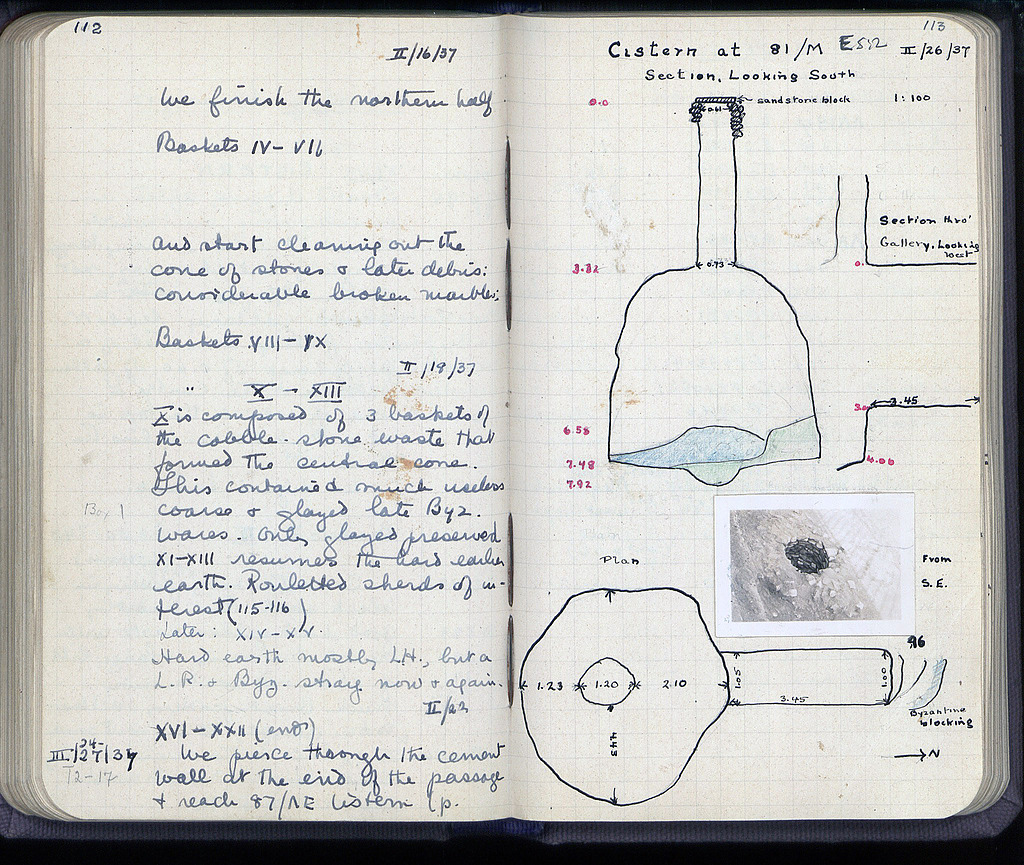 112
II/16/37
We finish the northern half
Baskets IV – VII
and start cleaning out the
cone of stones & later debris:
considerable broken marbles.
Baskets VIII – IX
II/18/37
" X – XIII
X is composed of 3 baskets of
the cobble-stone waste that
formed the central cone.
This contained much useless
Box 1
coarse & glazed late Byz.
wares. Only glazed preserved
XI–XIII resumes the hard earlier
earth. Rouletted sherds of in-
terest (115-116)
Later: XIV – XV.
Hard earth mostly LH., but a
L.R. & Byz. stray now & again.
II/23
XVI – XXII (end)
III/27/37
24-
We pierce through the cement
T2-17
wall at the end of the passage
& reach 87/ΛΕ Cistern (p.
113
Cistern at 81/M E5:2 II/26/37
Section, Looking South
0.0
sandstone block
1:100
0.61
Section thro'
Gallery, Looking
West
3.32
0.73
0.
3.45
6.58
7.48
4.00
7.92
Plan
From
S.E.
96
1.23
1.20
2.10
1.05
3.45
1.00
4.43
Byzantine
blocking
N